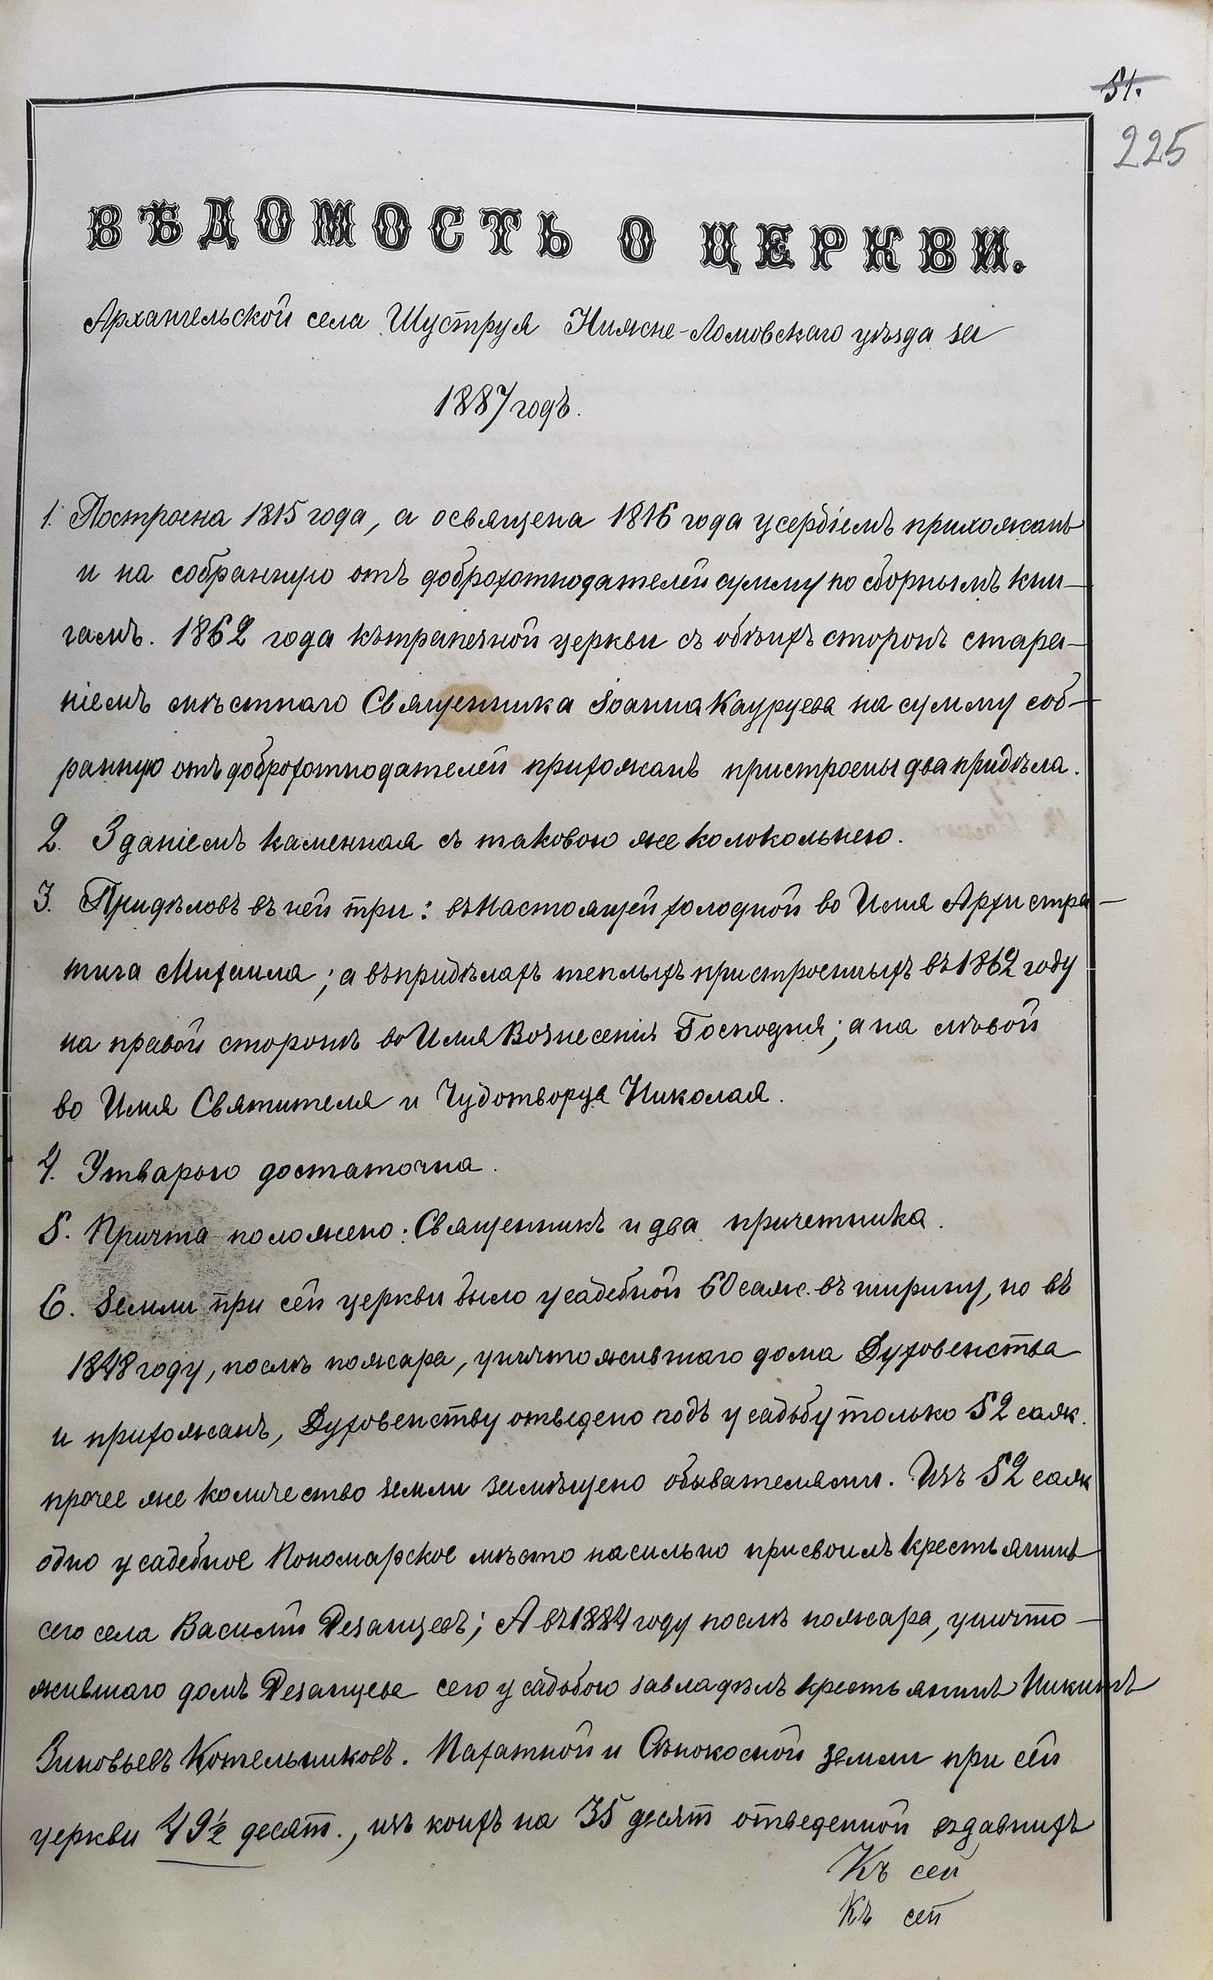 51.
225
ВѢДОМОСТЬ О ЦЕРКВИ.
Архангельской села Шуструя Нижне-Ломовскаго уѣзда за
1887 годъ.
1. Построена 1815 года, а освящена 1816 года усердіемъ прихожанъ
и на собранную отъ доброхотнодателей сумму по сборнымъ кни-
гамъ. 1862 года къ трапезной церкви съ обѣихъ сторонъ стара-
ніемъ мѣстнаго Священника Іоанна Кауруева на сумму соб-
ранную отъ доброхотнодателей прихожанъ пристроены два придѣла.
2. Зданіемъ каменная съ таковою же колокольнею.
3. Придѣловъ въ ней три: въ настоящей холодной во Имя Архистра-
тига Михаила; а въ придѣлахъ теплыхъ пристроенныхъ въ 1862 году
на правой сторонѣ во Имя Вознесенія Господня; а на лѣвой
во Имя Святителя и Чудотворца Николая.
4. Утварью достаточна.
5. Причта положено: Священникъ и два причетника.
6. Земли при сей церкви было усадебной 60 саж. въ ширину, но въ
1848 году, послѣ пожара, уничтожившаго дома Духовенства
и прихожанъ, Духовенству отведено подъ усадьбу только 52 саж.
прочее же количество земли замѣщено обывателями. Изъ 52 саж
одно усадебное Пономарское мѣсто насильно присвоилъ крестьянинъ
сего села Василій Резанцевъ; А въ 1884 году послѣ пожара, уничто-
жившаго домъ Резанцева сего усадьбою завладѣлъ крестьянинъ Никита
Зиновьевъ Котельниковъ. Пахатной и Сѣнокосной земли при сей
церкви 49½ десят., изъ коихъ на 35 десят отведенной издавнихъ
Къ сей
Къ сей